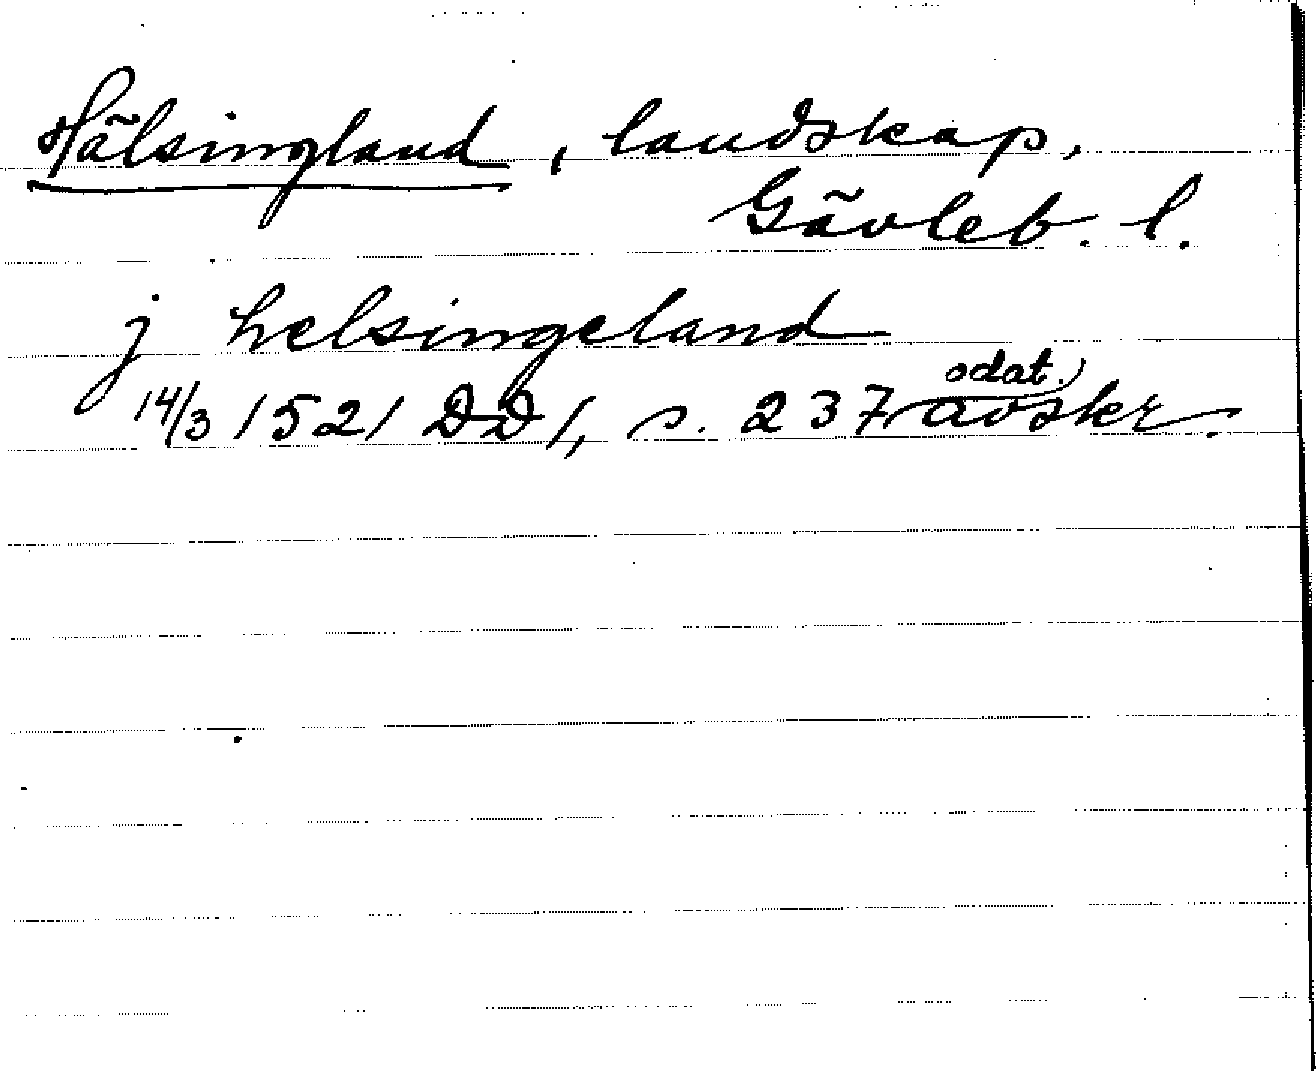 Hälsingland, landskap,
Gävleb. l.
j helsingeland
odat.)
14/3 1521 DD 1, s. 237 avskr.